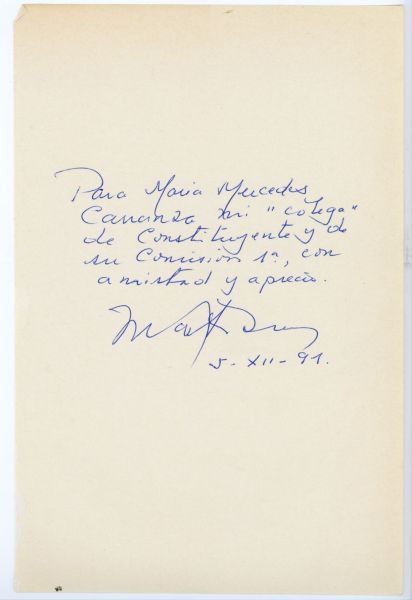 Para María Mercedes
Carranza mi "colega"
de Constituyente y de
su Comisión 1ª, con
amistad y aprecio.
5-XII-91.